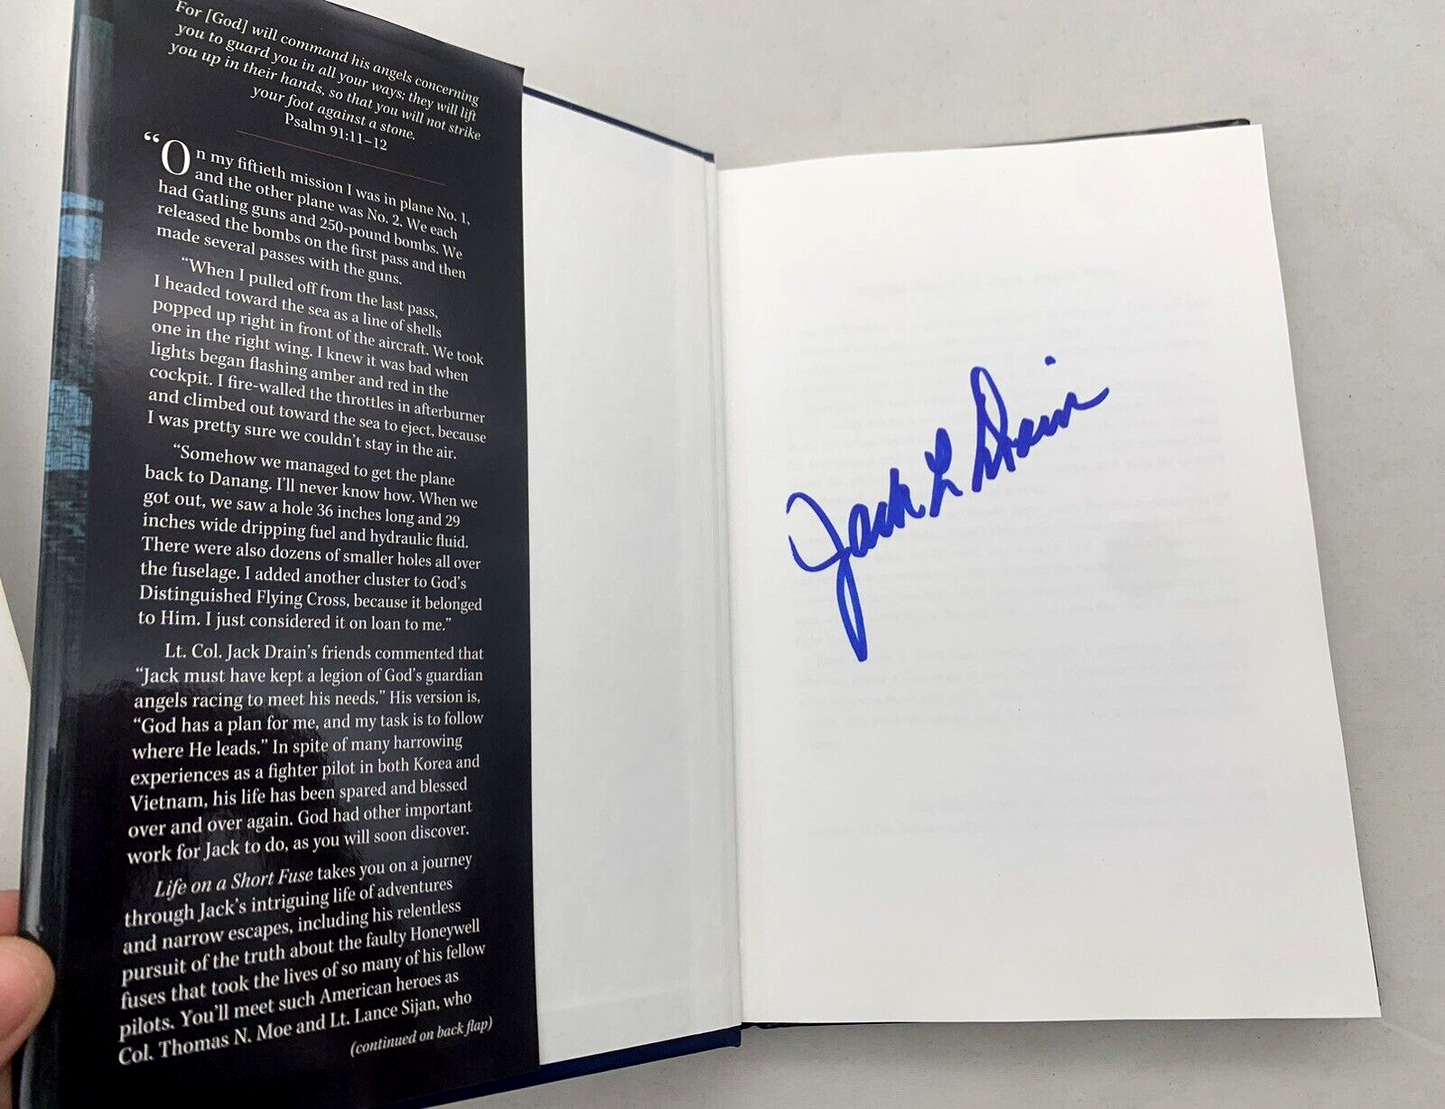 For [God] will command his angels concerning
you to guard you in all your ways; they will lift
you up in their hands, so that you will not strike
your foot against a stone.
Psalm 91:11–12
“On my fiftieth mission I was in plane No. 1,
and the other plane was No. 2. We each
had Gatling guns and 250-pound bombs. We
released the bombs on the first pass and then
made several passes with the guns.
“When I pulled off from the last pass,
I headed toward the sea as a line of shells
popped up right in front of the aircraft. We took
one in the right wing. I knew it was bad when
lights began flashing amber and red in the
cockpit. I fire-walled the throttles in afterburner
and climbed out toward the sea to eject, because
I was pretty sure we couldn’t stay in the air.
“Somehow we managed to get the plane
back to Danang. I’ll never know how. When we
got out, we saw a hole 36 inches long and 29
inches wide dripping fuel and hydraulic fluid.
There were also dozens of smaller holes all over
the fuselage. I added another cluster to God’s
Distinguished Flying Cross, because it belonged
to Him. I just considered it on loan to me.”
Lt. Col. Jack Drain’s friends commented that
“Jack must have kept a legion of God’s guardian
angels racing to meet his needs.” His version is,
“God has a plan for me, and my task is to follow
where He leads.” In spite of many harrowing
experiences as a fighter pilot in both Korea and
Vietnam, his life has been spared and blessed
over and over again. God had other important
work for Jack to do, as you will soon discover.
Life on a Short Fuse takes you on a journey
through Jack’s intriguing life of adventures
and narrow escapes, including his relentless
pursuit of the truth about the faulty Honeywell
fuses that took the lives of so many of his fellow
pilots. You’ll meet such American heroes as
Col. Thomas N. Moe and Lt. Lance Sijan, who
(continued on back flap)
Jack L Drain